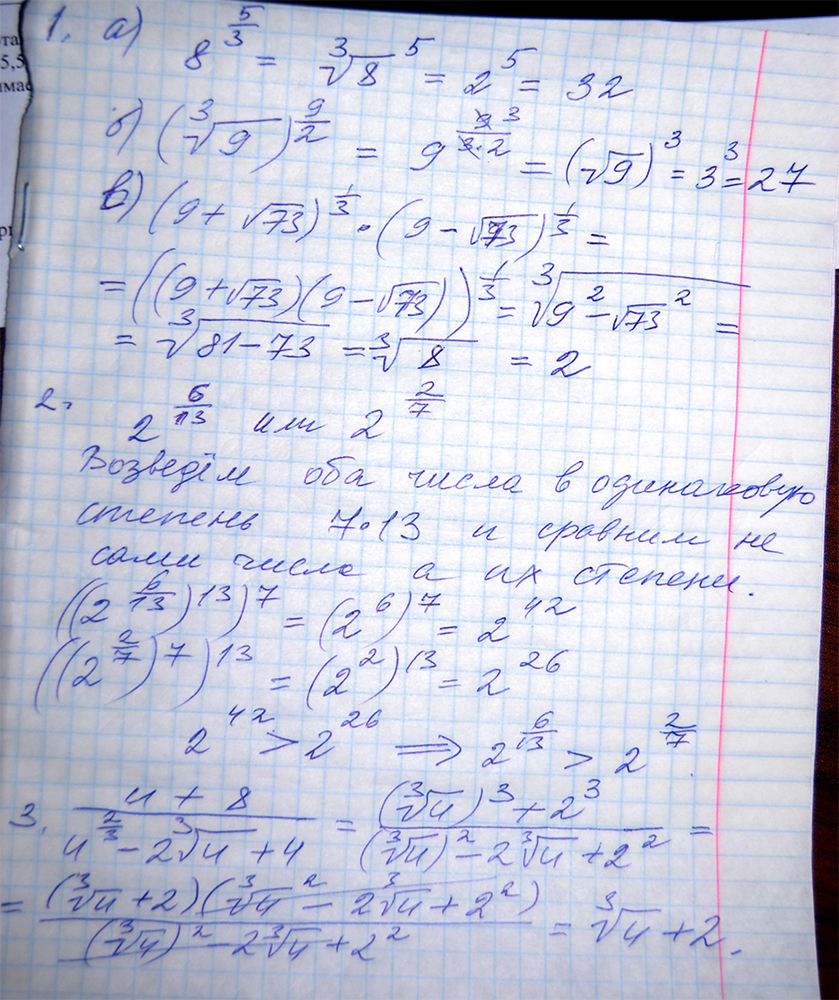 1. а) 8^(5/3) = ∛8^5 = 2^5 = 32
б) (∛9)^(9/2) = 9^(9/(3·2)) ^3 = (√9)^3 = 3^3 = 27
в) (9 + √73)^(1/3) · (9 - √73)^(1/3) =
= ((9 + √73)(9 - √73))^(1/3) = ∛(9^2 - √73^2) =
= ∛(81 - 73) = ∛8 = 2
2. 2^(6/13) или 2^(2/7)
Возведём оба числа в одинаковую
степень 7·13 и сравним не
сами числа а их степени.
((2^(6/13))^13)^7 = (2^6)^7 = 2^42
((2^(2/7))^7)^13 = (2^2)^13 = 2^26
2^42 > 2^26 ⟹ 2^(6/13) > 2^(2/7)
3. (u + 8)/(u^(2/3) - 2∛u + 4) = ((∛u)^3 + 2^3)/((∛u)^2 - 2∛u + 2^2) =
= ((∛u + 2)(∛u^2 - 2∛u + 2^2))/((∛u)^2 - 2∛u + 2^2) = ∛u + 2.